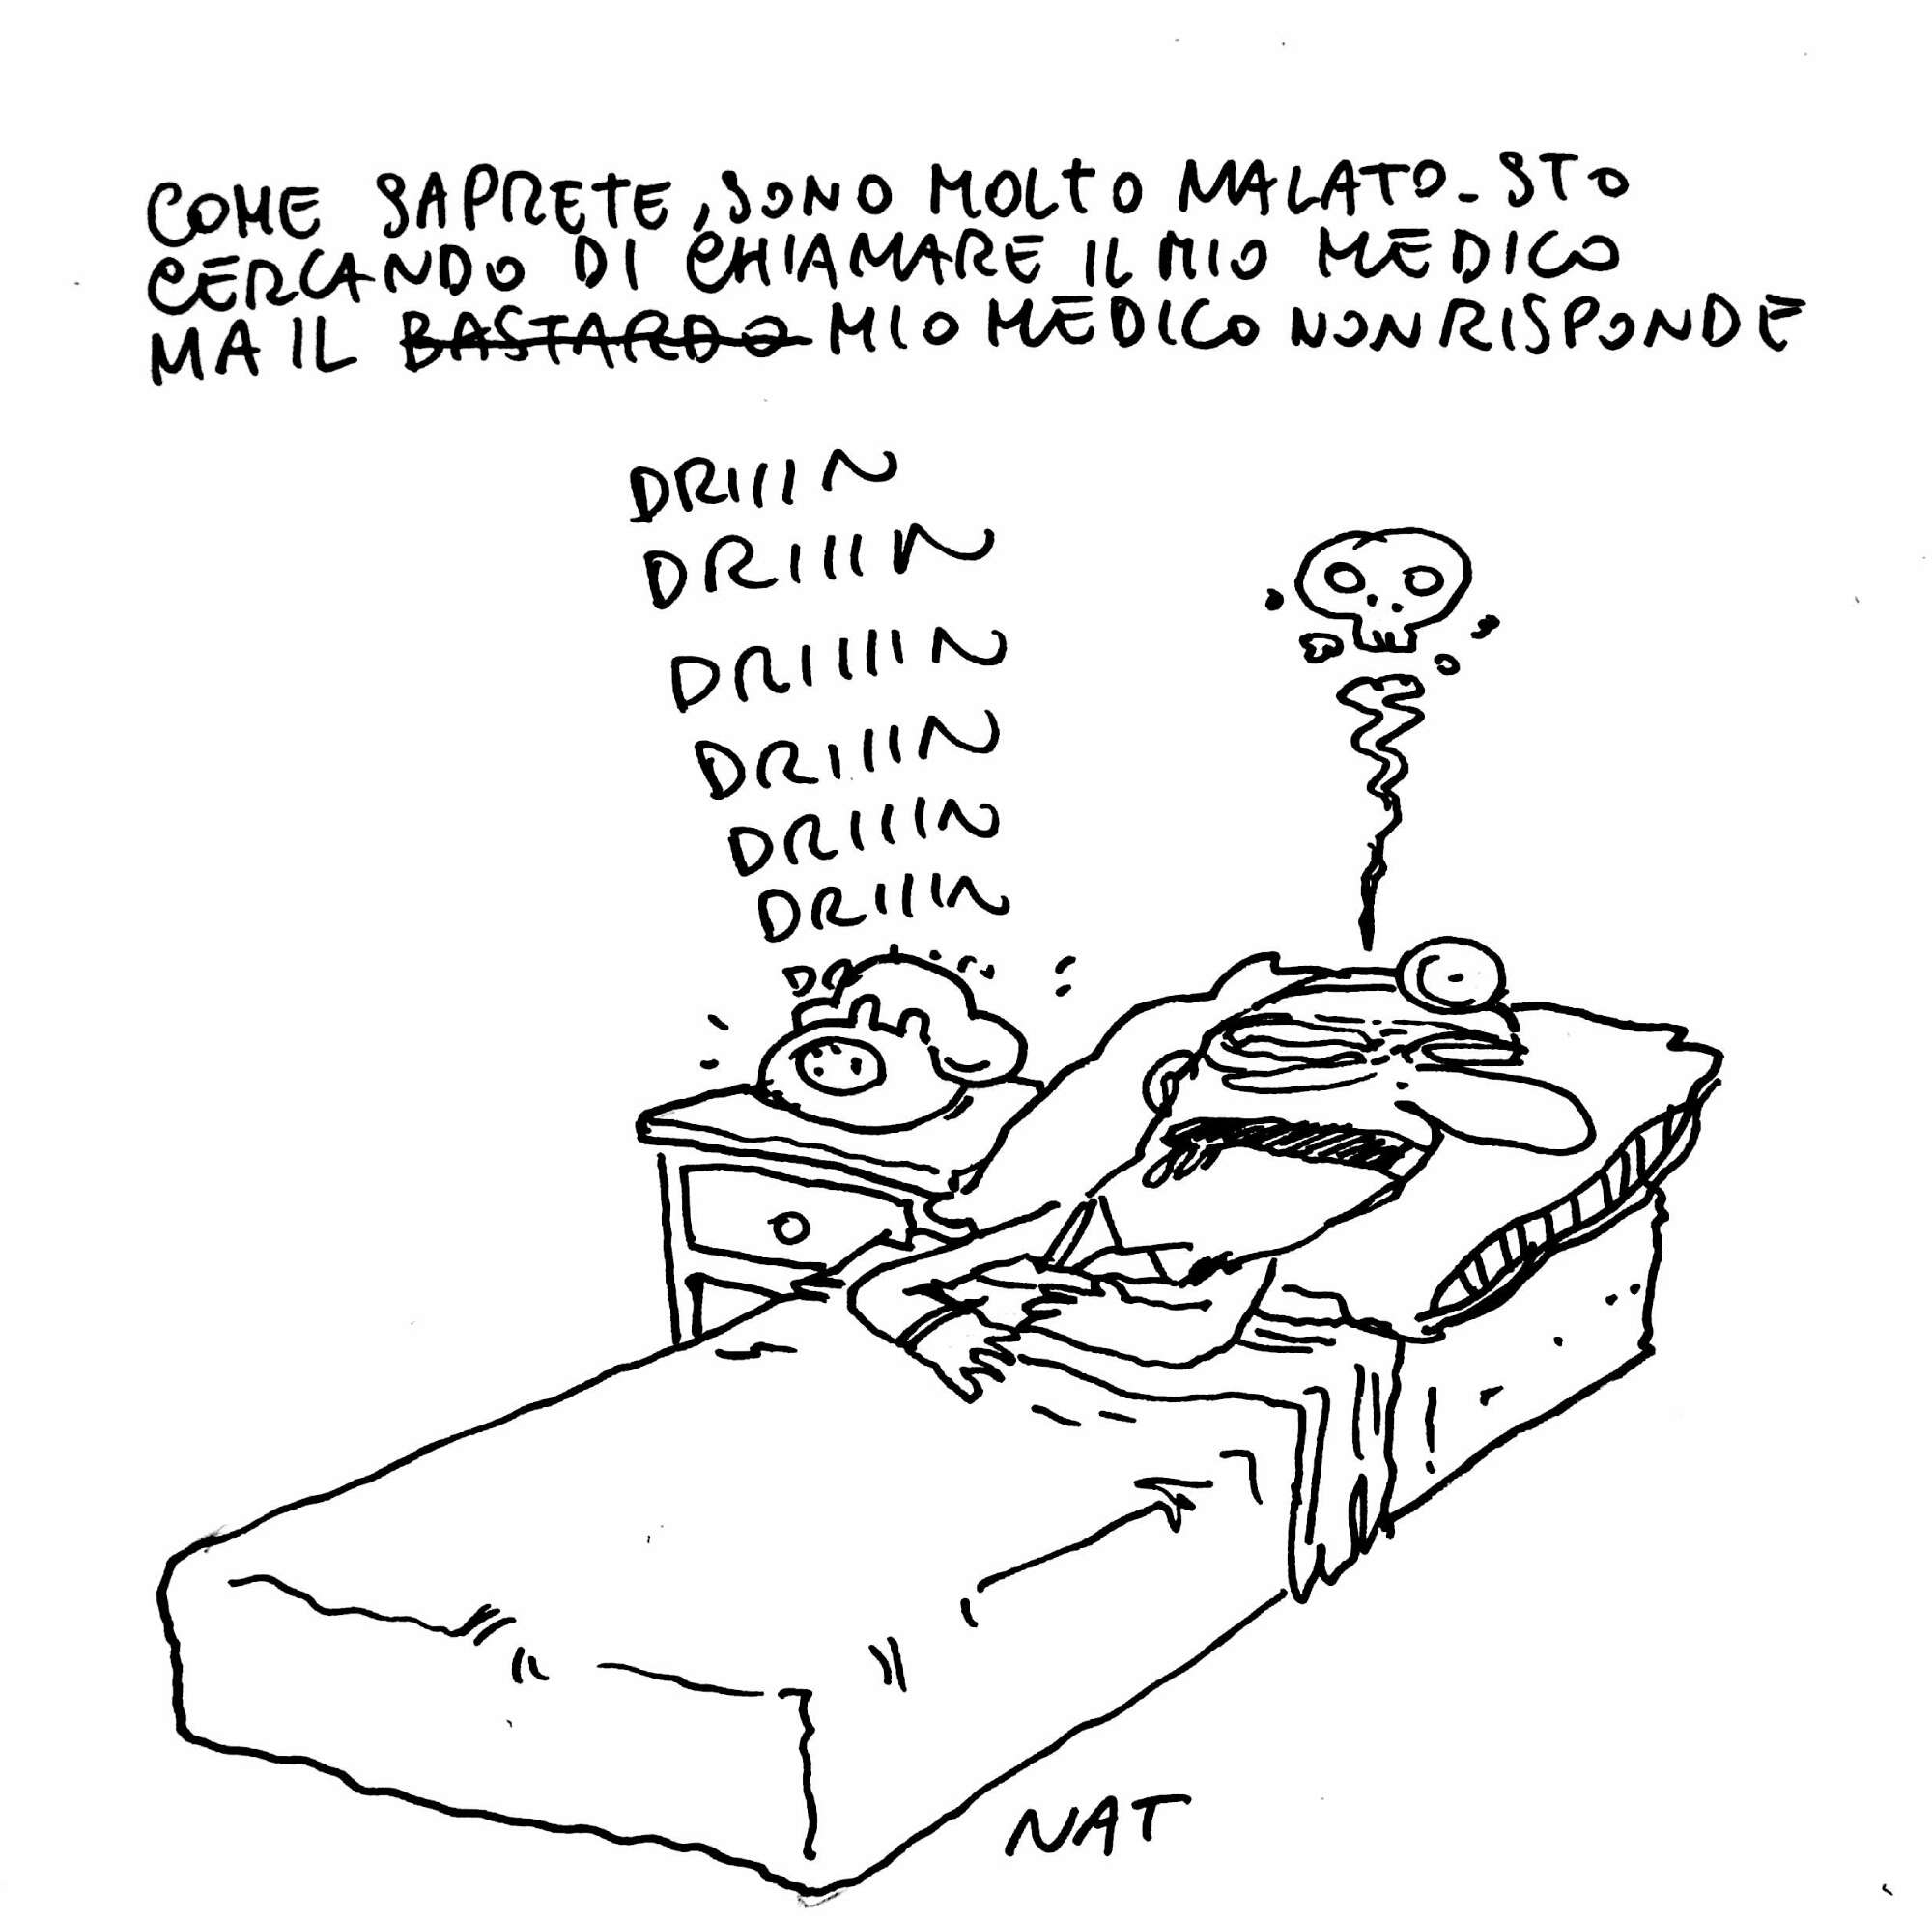 COME SAPRETE, SONO MOLTO MALATO. STO
CERCANDO DI CHIAMARE IL MIO MEDICO
MA IL BASTARDO MIO MEDICO NON RISPONDE
DRIIIN
DRIIIN
DRIIIIN
DRIIIN
DRIIIN
DRIIIN
NAT